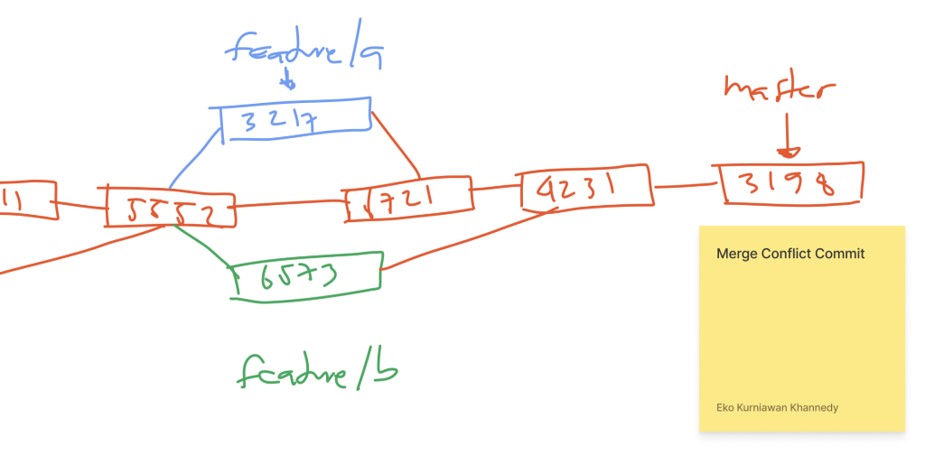 feature/a
3217
master
11
5552
1721
4231
3198
6573
feature/b
Merge Conflict Commit
Eko Kurniawan Khannedy